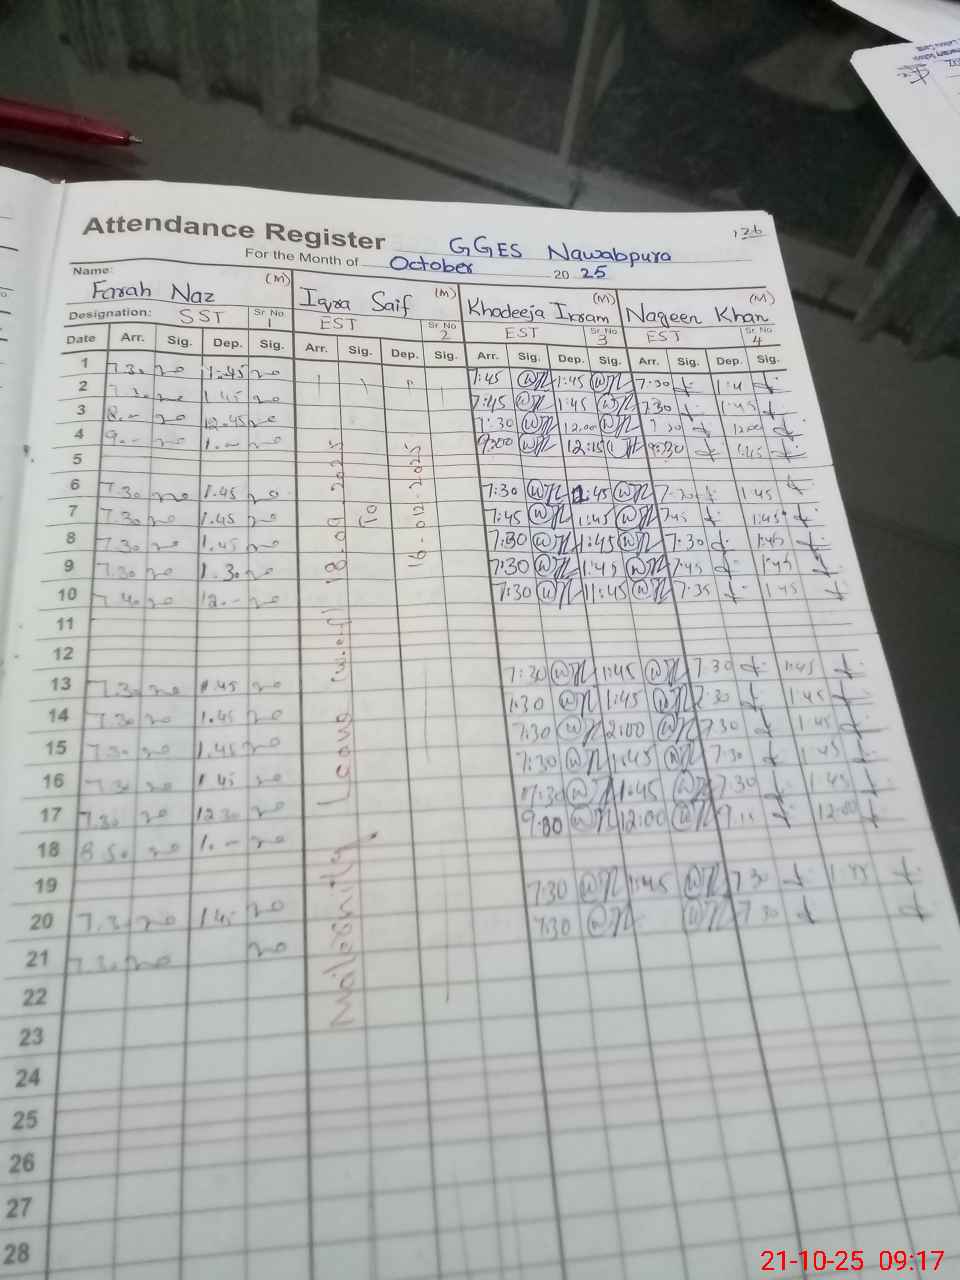 Attendance Register
GGES Nawabpura
126
For the Month of October 20 25
Name: Farah Naz (M) Iqra Saif (M) Khadeeja Irram (M) Nageen Khan (M)
Designation: SST Sr No 1 EST Sr No 2 EST Sr No 3 EST Sr No 4
Date Arr. Sig. Dep. Sig. Arr. Sig. Dep. Sig. Arr. Sig. Dep. Sig. Arr. Sig. Dep. Sig.
1 7.30 1.45 1:45 1:45 7:30
2 1.45 7:45 1:45 7:30 1:45
3 8.- 12.45 7:30 12:00 7:30 12:00
4 9.- 1.- 9:00 12:15 9:30 1:45
5
6 7.30 1.45 7:30 1:45 7:30 1:45
7 7.30 1.45 7:45 1:45 7:45 1:45
8 7.30 1.45 7:30 1:45 7:30 1:45
9 7.30 1.30 7:30 1:45 7:45 1:45
10 7.40 12.- 7:30 11:45 7:35 1:45
11
12
13 7.30 1.45 7:30 1:45 7:30 1:45
14 7.30 1.45 1:30 1:45 7:30 1:45
15 7.30 1.45 7:30 2:00 7:30 1:45
16 7.30 1.45 7:30 1:45 7:30 1:45
17 7.30 12.30 7:30 1:45 7:30 1:45
18 8.50 1.- 9:00 12:00 12:00
19
20 7.30 1.45 7:30 1:45 7:30
21 7.30 7:30 7:30
22
23
24
25
26
27
28
Leave w.e.f 18-09-2025
to
21-10-25 09:17